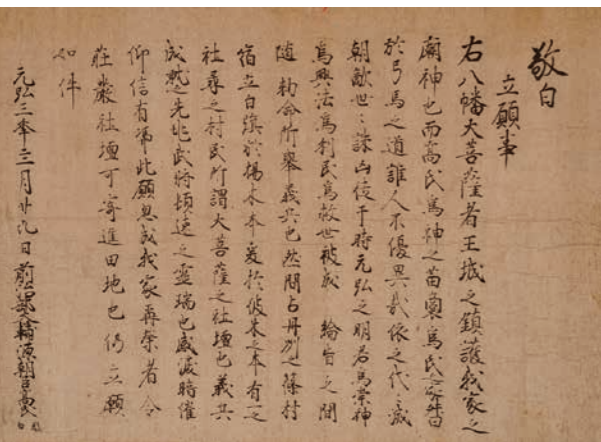 敬白
立願事
右八幡大菩薩者王城之鎮護我家之
廟神也而高氏為神之苗裔為氏之家督
於弓馬之道誰人不優異哉依之代々滅
朝敵世々誅凶徒于時元弘之明君為崇神
為興法為利民為救世被成 綸旨之間
随 勅命所擧義兵也然間占丹州之篠村
宿立白旗於楊木本爰於彼木之本有一之
社尋之村民所謂大菩薩之社壇也義兵
成就之先兆武将頓速之霊瑞也感涙暗催
仰信有憑此願忽成我家再栄者令
荘厳社壇可寄進田地也仍立願
如件
元弘三年 月廿九日 前治部大輔源朝臣高氏敬白